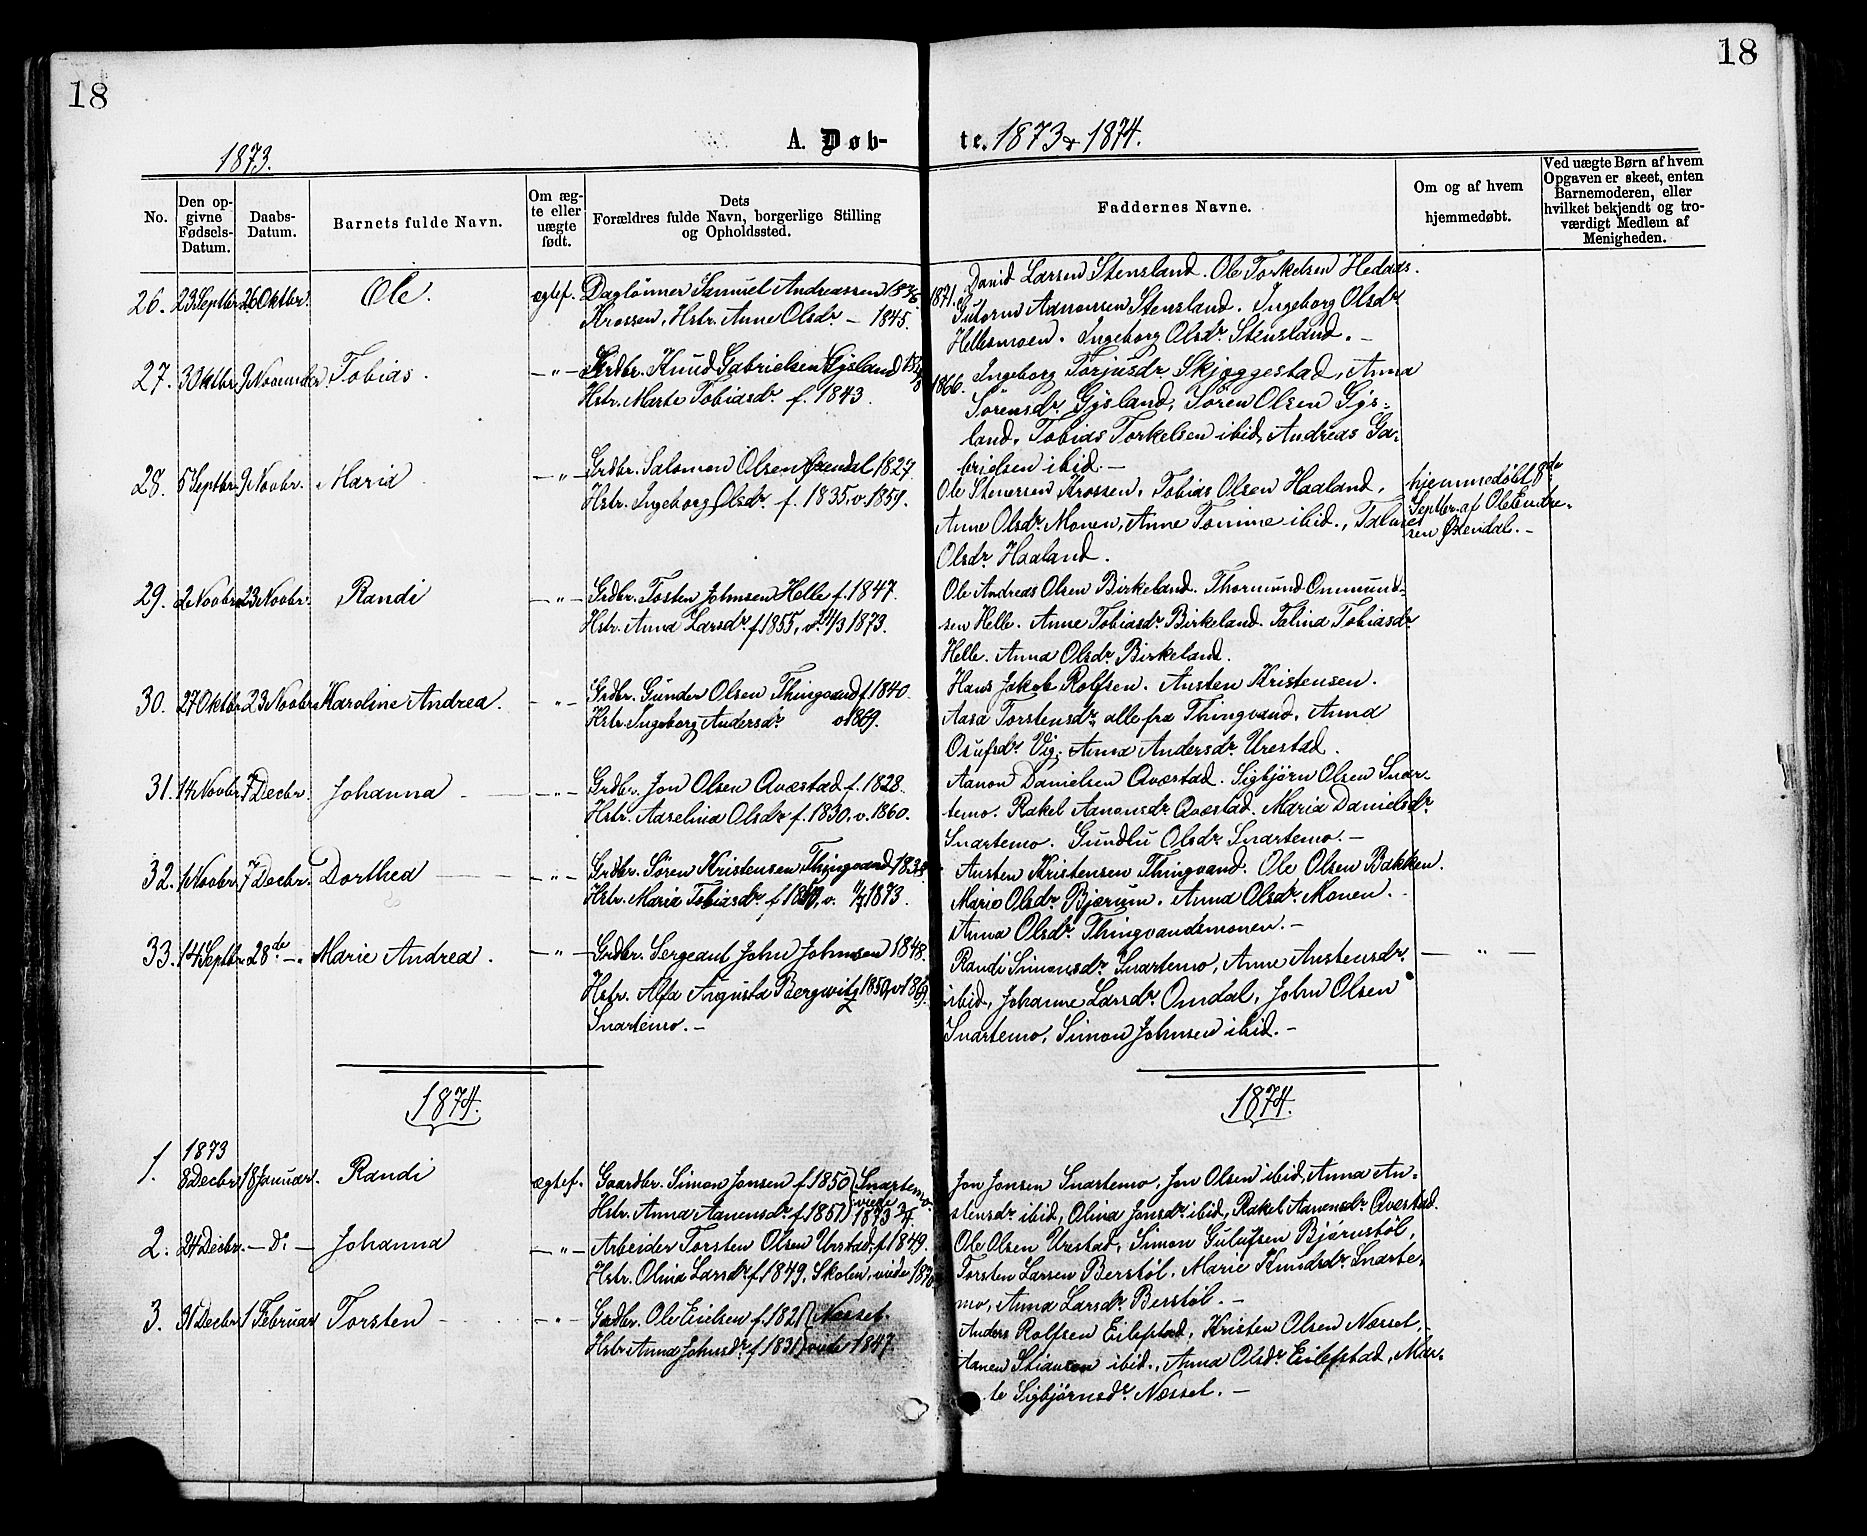 18
18
A. Døb-
te. 1873 & 1874.
1873.
No.
Den op-
givne
Fødsels-
Datum.
Daabs-
Datum.
Barnets fulde Navn.
Om æg-
te eller
uægte
født.
Dets
Forældres fulde Navn, borgerlige Stilling
og Opholdssted.
Faddernes Navne.
Om og af hvem
hjemmedøbt.
Ved uægte Børn af hvem
Opgaven er skeet, enten
Barnemoderen, eller
hvilket bekjendt og tro-
værdigt Medlem af
Menigheden.
26. 23 Septbr. 26 Oktbr. Ole. ægtef. Daglønner Samuel Andreassen
Krossen, Hstr. Anne Olsdr. – 1845.
1871. David Larsen Stensland. Ole Torkelsen Hedaas.
Gutorm Aanonsen Stensland. Ingeborg Olsdr.
Hellesmoen. Ingeborg Olsdr. Stensland. –
27. 3 Oktbr. 9 November. Tobias. –"– Grdbr. Knud Gabrielsen Gysland
Hstr. Marte Tobiasdr. f. 1843.
1866. Ingeborg Torjusdr. Skjeggestad, Anna
Sørensdr. Gysland, Søren Olsen Gys-
land, Tobias Torkelsen ibid, Andreas Ga-
brielsen ibid. –
28. 5 Septbr. 9 Novbr. Maria –"– Grdbr. Salomon Olsen Øxendal 1827.
Hstr. Ingeborg Olsdr. f. 1835, v. 1859.
Ole Stenersen Krossen, Tobias Olsen Haaland,
Anne Olsdr. Monen, Anne Tomine ibid.,
Olsdr. Haaland.
hjemmedøbt 8de
Septbr. af Ole Endre-
sen Øxendal. –
29. 2 Novbr. 23 Novbr. Randi –"– Grdbr. Tosten Johnsen Helle f. 1847.
Hstr. Anna Larsdr. f 1855, v. 14/3 1873.
Ole Andreas Olsen Birkeland. Thormund Ommund-
sen Helle. Anne Tobiasdr. Birkeland. Talina Tobiasdr.
Helle. Anna Olsdr. Birkeland.
30. 27 Oktbr. 23 Novbr. Karoline Andrea. –"– Grdbr. Gunder Olsen Thingvand f. 1840.
Hstr. Ingeborg Andersdr. v. 1869.
Hans Jakob Rolfsen. Austen Kristensen.
Aasa Torstensdr., alle fra Thingvand, Anna
Osufsdr. Vig, Anna Andersdr. Urestad.
31. 14 Novbr. 7 Decbr. Johanna –"– Grdbr. Jon Olsen Qvæstad f. 1828.
Hstr. Aaselina Olsdr. f. 1830, v. 1860.
Aanon Danielsen Qvæstad. Sigbjørn Olsen Snar-
temo. Rakel Aanonsdr. Qvæstad. Maria Danielsdr.
Snartemo. Gundlu Olsdr. Snartemo. –
32. 1 Novbr. 7 Decbr. Dorthea –"– Grdbr. Søren Kristensen Thingvand
Hstr. Maria Tobiasdr. f v. 1873.
Austen Kristensen Thingvand. Ole Olsen Bakken.
Marie Olsdr. Bjærum. Anna Olsdr. Monen. –
Anna Olsdr. Thingvandsmonen. –
33. 14 Septbr. 28de –"– Marie Andrea. –"– Grdbr. Sergeant John Johnsen 1848.
Hstr. Alfa Augusta Bergwitz 1850, v. 1869.
Snartemo. –
Randi Simonsdr. Snartemo, Anne Austensdr.
ibid, Johanne Larsdr. Omdal, John Olsen
Snartemo, Simon Johnsen ibid. –
– " –
1874.
1874.
1. 1873
8 Decbr. 18 Januar. Randi ægtef. Gaardbr. Simon Jonsen f. 1850 } Snartemo
Hstr. Anna Aanensdr. f. 1851 } viede 1873
Jon Jonsen Snartemo, Jon Olsen ibid, Anna Au-
stensdr. ibid, Olina Jonsdr. ibid, Rakel Aanensdr. Qvæstad.
2. 24 Decbr. – Do – Johanna –"– Arbeider Torsten Olsen Urstad, f. 1849.
Hstr. Olina Larsdr. f 1849, Skolen, viede
Ole Olsen Urestad, Simon Gulufsen Bjørnstøl,
Torsten Larsen Berstøl. Marie Knudsdr. Snarte-
mo, Anna Larsdr. Berstøl. –
3. 31 Decbr. 1 Februar Torsten –"– Grdbr. Ole Eielsen f. 1821 } Næsset.
Hstr. Anna Johnsdr. f 1831 } viede 1847.
Anders Rolfsen Eilefstad, Kristen Olsen Næsset, –
Aanen ibid., Anna Olsdr. Eilefstad, Mar-
te Sigbjørnsdr. Næsset. –